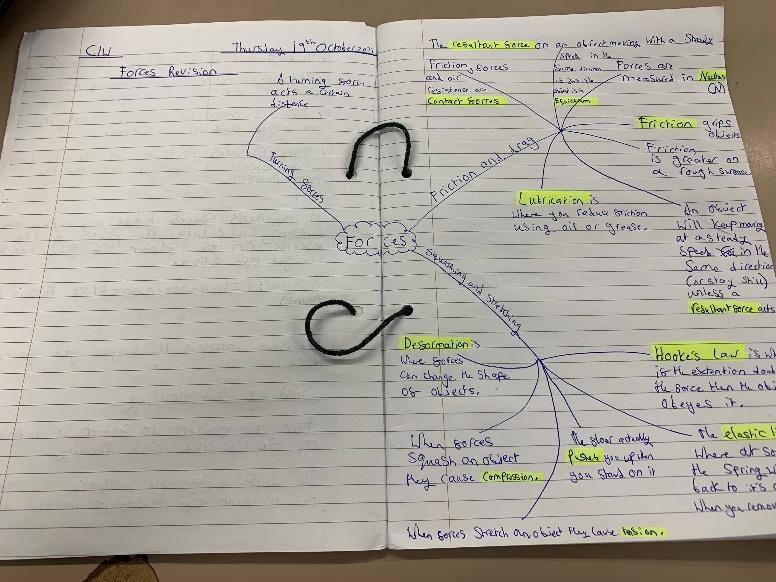 C/W
Thursday 19th October
Forces Revision
A turning force
acts a certain
distance
Turning forces
Forces
Friction and drag
Squashing and stretching
The resultant force on an object moving with a steady
speed in the
same direction
Equilibrium
Friction forces
and air
resistance are
Contact forces
Forces are
measured in
(N)
Friction grips
objects
Friction
is greater on
a rough surface
Lubrication is
where you reduce friction
using oil or grease.
An object
will keep moving
at a steady
speed in the
same direction
(or stay still)
unless a
resultant force acts
Deformation is
where forces
can change the shape
of objects.
Hooke's Law is
is the extention
the force then the
obeyes it.
When forces
squash an object
they cause compression.
The floor actually
pushes you up when
you stand on it
The elastic
Where
the spring
back to it's
when you
When forces stretch an object they cause tension.